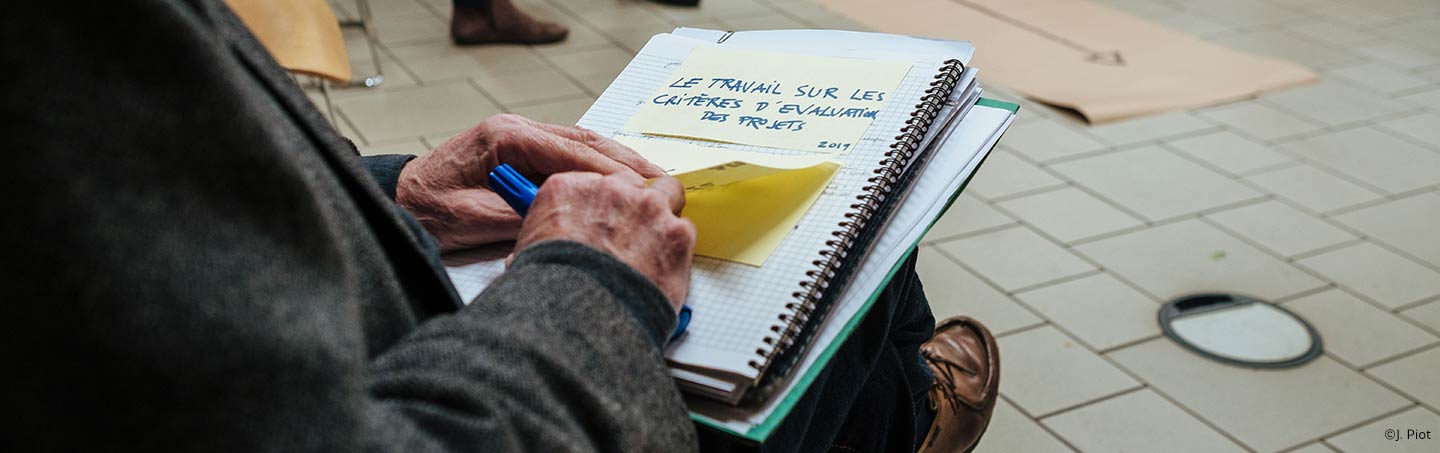 LE TRAVAIL SUR LES
CRITÈRES D'EVALUATION
DES PROJETS
2019
©J. Piot